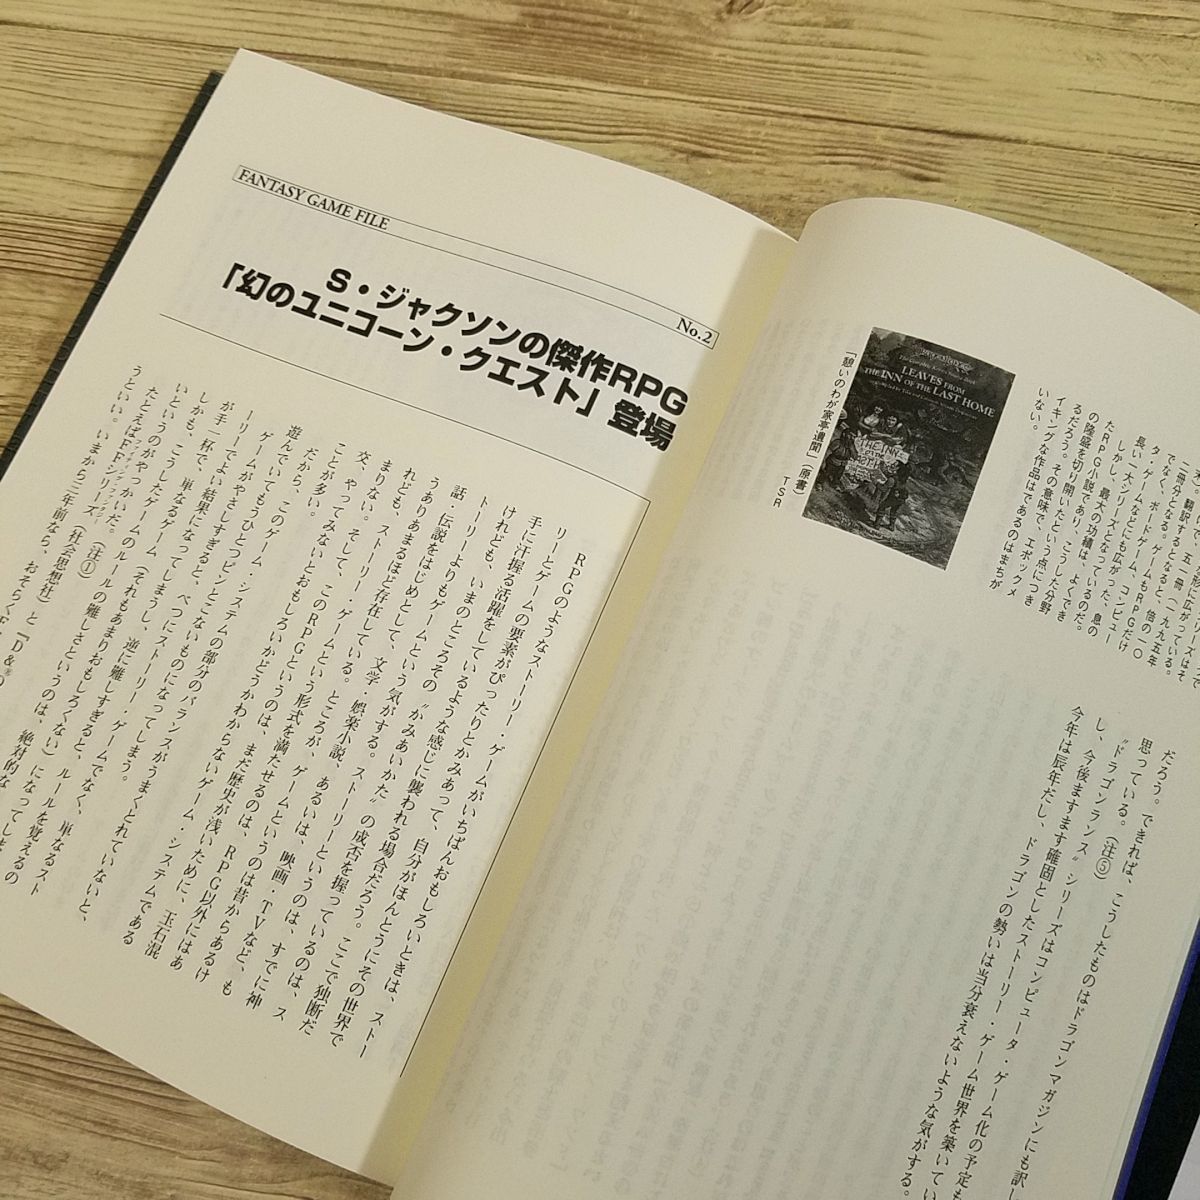 二冊分となる。ゲームもRPGだけ
でなく、ボードゲーム、コンピュー
タ・ゲームなどにも広がった、息の
長い一大シリーズとなっているのだ。
しかし、最大の功績は、よくでき
たRPG小説であり、こうした分野
の隆盛を切り開いたという点につき
るだろう。その意味で、エポックメ
イキングな作品ではであるのはまちが
いない。
LEAVES FROM
THE INN OF THE LAST HOME
「憩いのわが家亭遺聞」(原書)
TSR
だろう。できれば、こうしたものはドラゴンマガジンにも訳し
思っている。(注⑤)
“ドラゴンランス”シリーズはコンピュータ・ゲーム化の予定も
し、今後ますます確固としたストーリー・ゲーム世界を築いてい
今年は辰年だし、ドラゴンの勢いは当分衰えないような気がする。
FANTASY GAME FILE
No.2
S・ジャクソンの傑作RPG
「幻のユニコーン・クエスト」登場
RPGのようなストーリー・ゲームがいちばんおもしろいときは、ストー
リーとゲームの要素がぴったりとかみあって、自分がほんとうにその世界で
手に汗握る活躍をしているような感じに襲われる場合だろう。ここで独断だ
けれども、いまのところその“かみあいかた”の成否を握っているのは、ス
トーリーよりもゲームという気がする。ストーリーというのは、すでに神
話・伝説をはじめとして、文学・娯楽小説、あるいは、映画・TVなど、も
うありあまるほど存在している。ところが、ゲームというのは昔からあるけ
れども、ストーリー・ゲームという形式を満たせるのは、RPG以外にはあ
まりない。そして、このRPGというのは、まだ歴史が浅いために、玉石混
交、やってみないとおもしろいかどうかわからないゲーム・システムである
ことが多い。
だから、このゲーム・システムの部分のバランスがうまくとれていないと、
遊んでいてもうひとつピンとこないものになってしまう。
ゲームがやさしすぎると、べつにストーリー・ゲームでなく、単なるスト
ーリーでよい結果になってしまうし、逆に難しすぎると、ルールを覚えるの
が手一杯で、単なるゲーム(それもあまりおもしろくない)になってしま
しかも、こうしたゲームのルールの難しさというのは、絶対的な
いというのがやっかいだ。
たとえばFFシリーズ(注①)(社会思想社)と『D&D
うといい。いまから二年前なら、おそらく